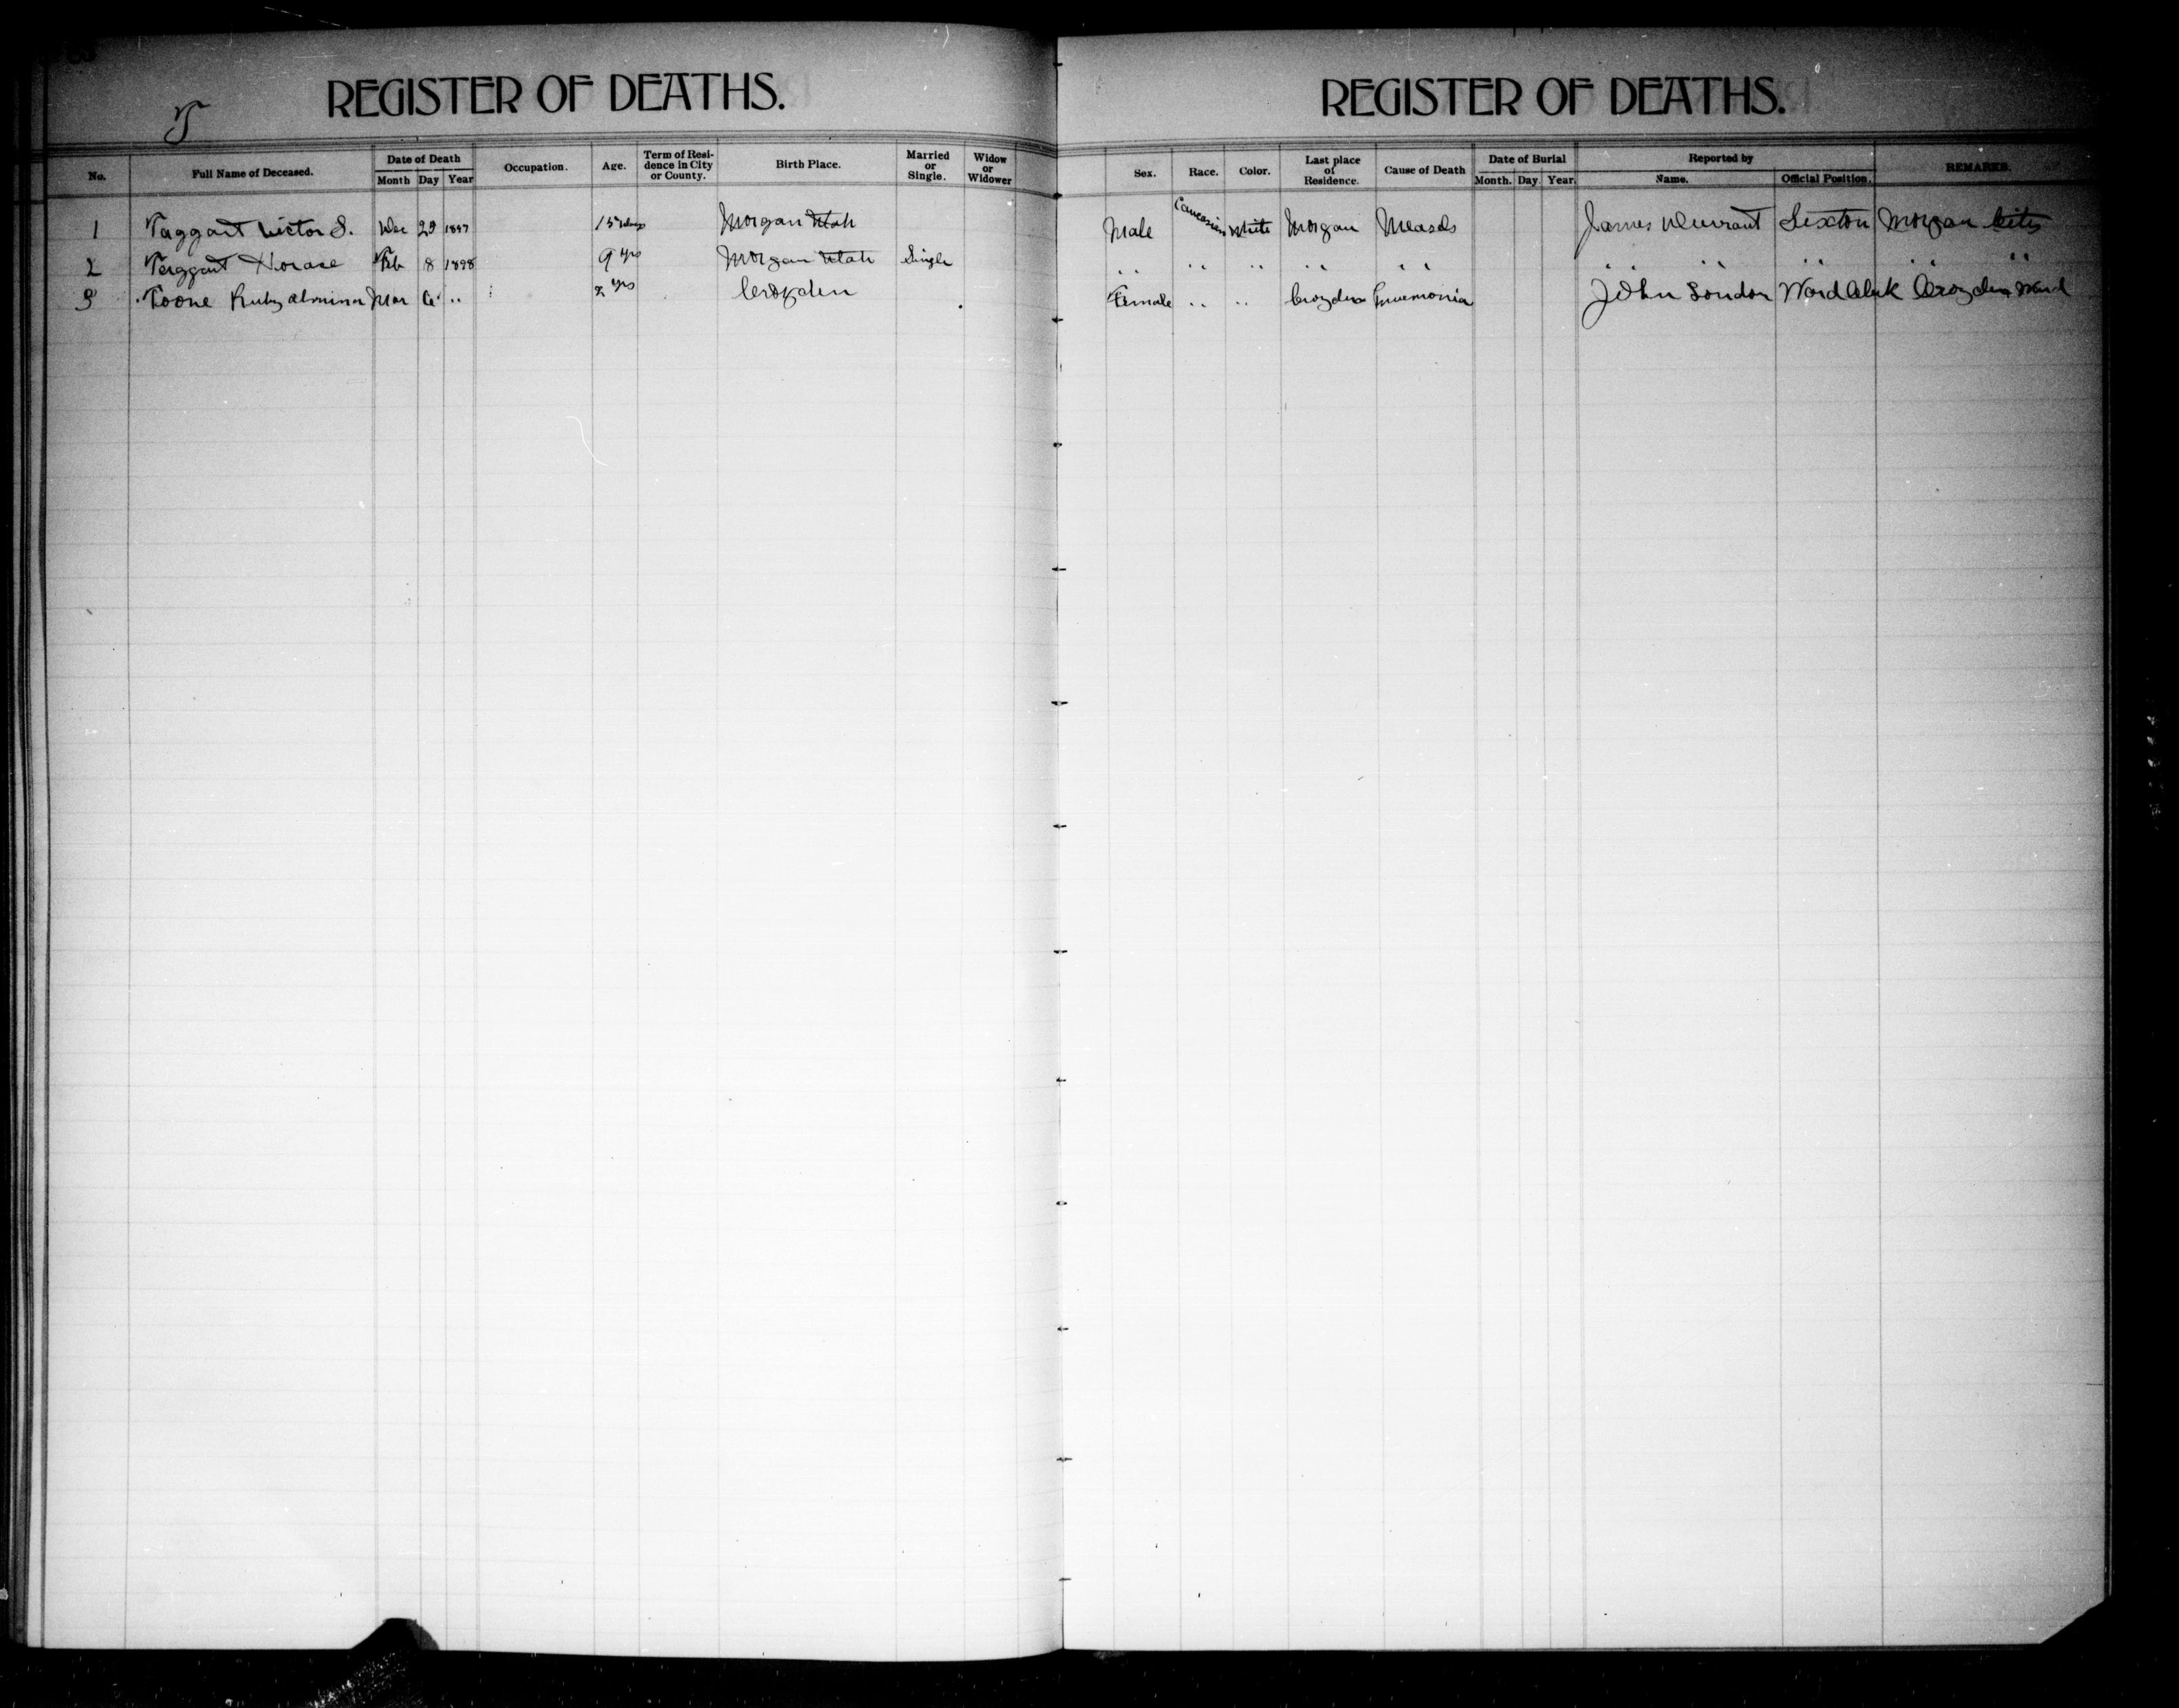 T
REGISTER OF DEATHS.
No. Full Name of Deceased. Date of Death Month Day Year Occupation. Age. Term of Residence in City or County. Birth Place. Married or Single. Widow or Widower
1 Taggart Victor S. Dec 1897 15 Morgan Utah
2 Taggart Horace Feb 8 1898 9 yrs Morgan Utah Single
3 Toone Ruby Almina Mar 6 " 2 yrs Croyden
REGISTER OF DEATHS.
Sex. Race. Color. Last place of Residence. Cause of Death Date of Burial Month. Day. Year. Reported by Name. Official Position. REMARKS.
Male Caucasian White Morgan Measels James Durrant Sexton Morgan City
" " " " " " " " "
Female " " Croyden Pneumonia John London Ward Clerk Croyden Ward